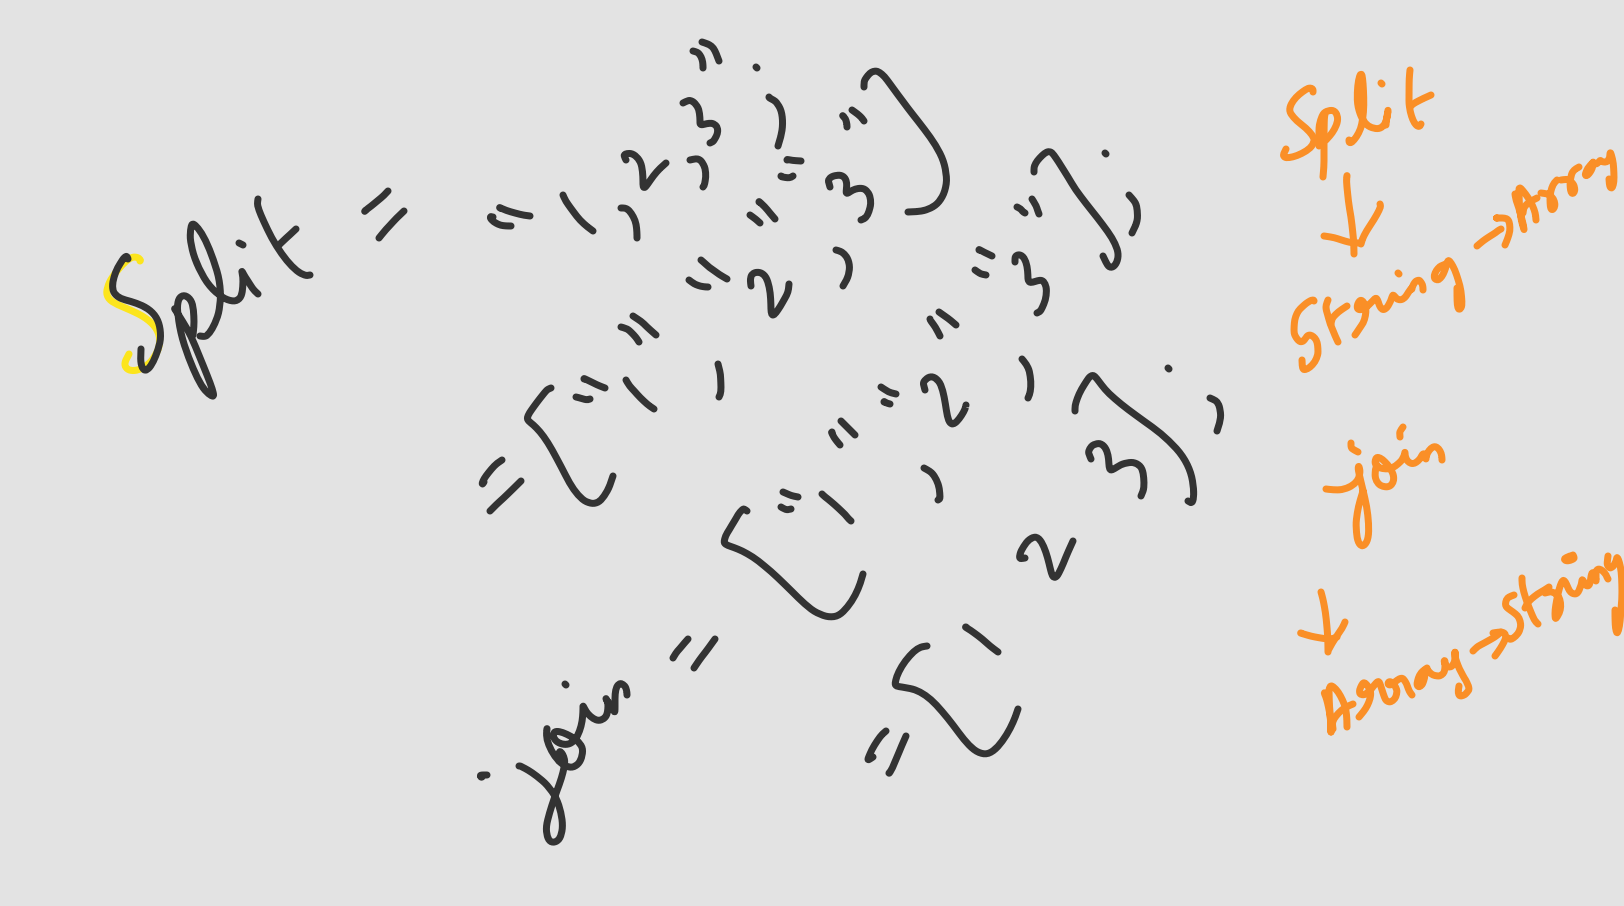 Split = "1,2,3";
= ["1", "2", "3"]
.join = ["1", "2", "3"];
= [1 2 3];
Split
↓
String → Array
join
↓
Array → string